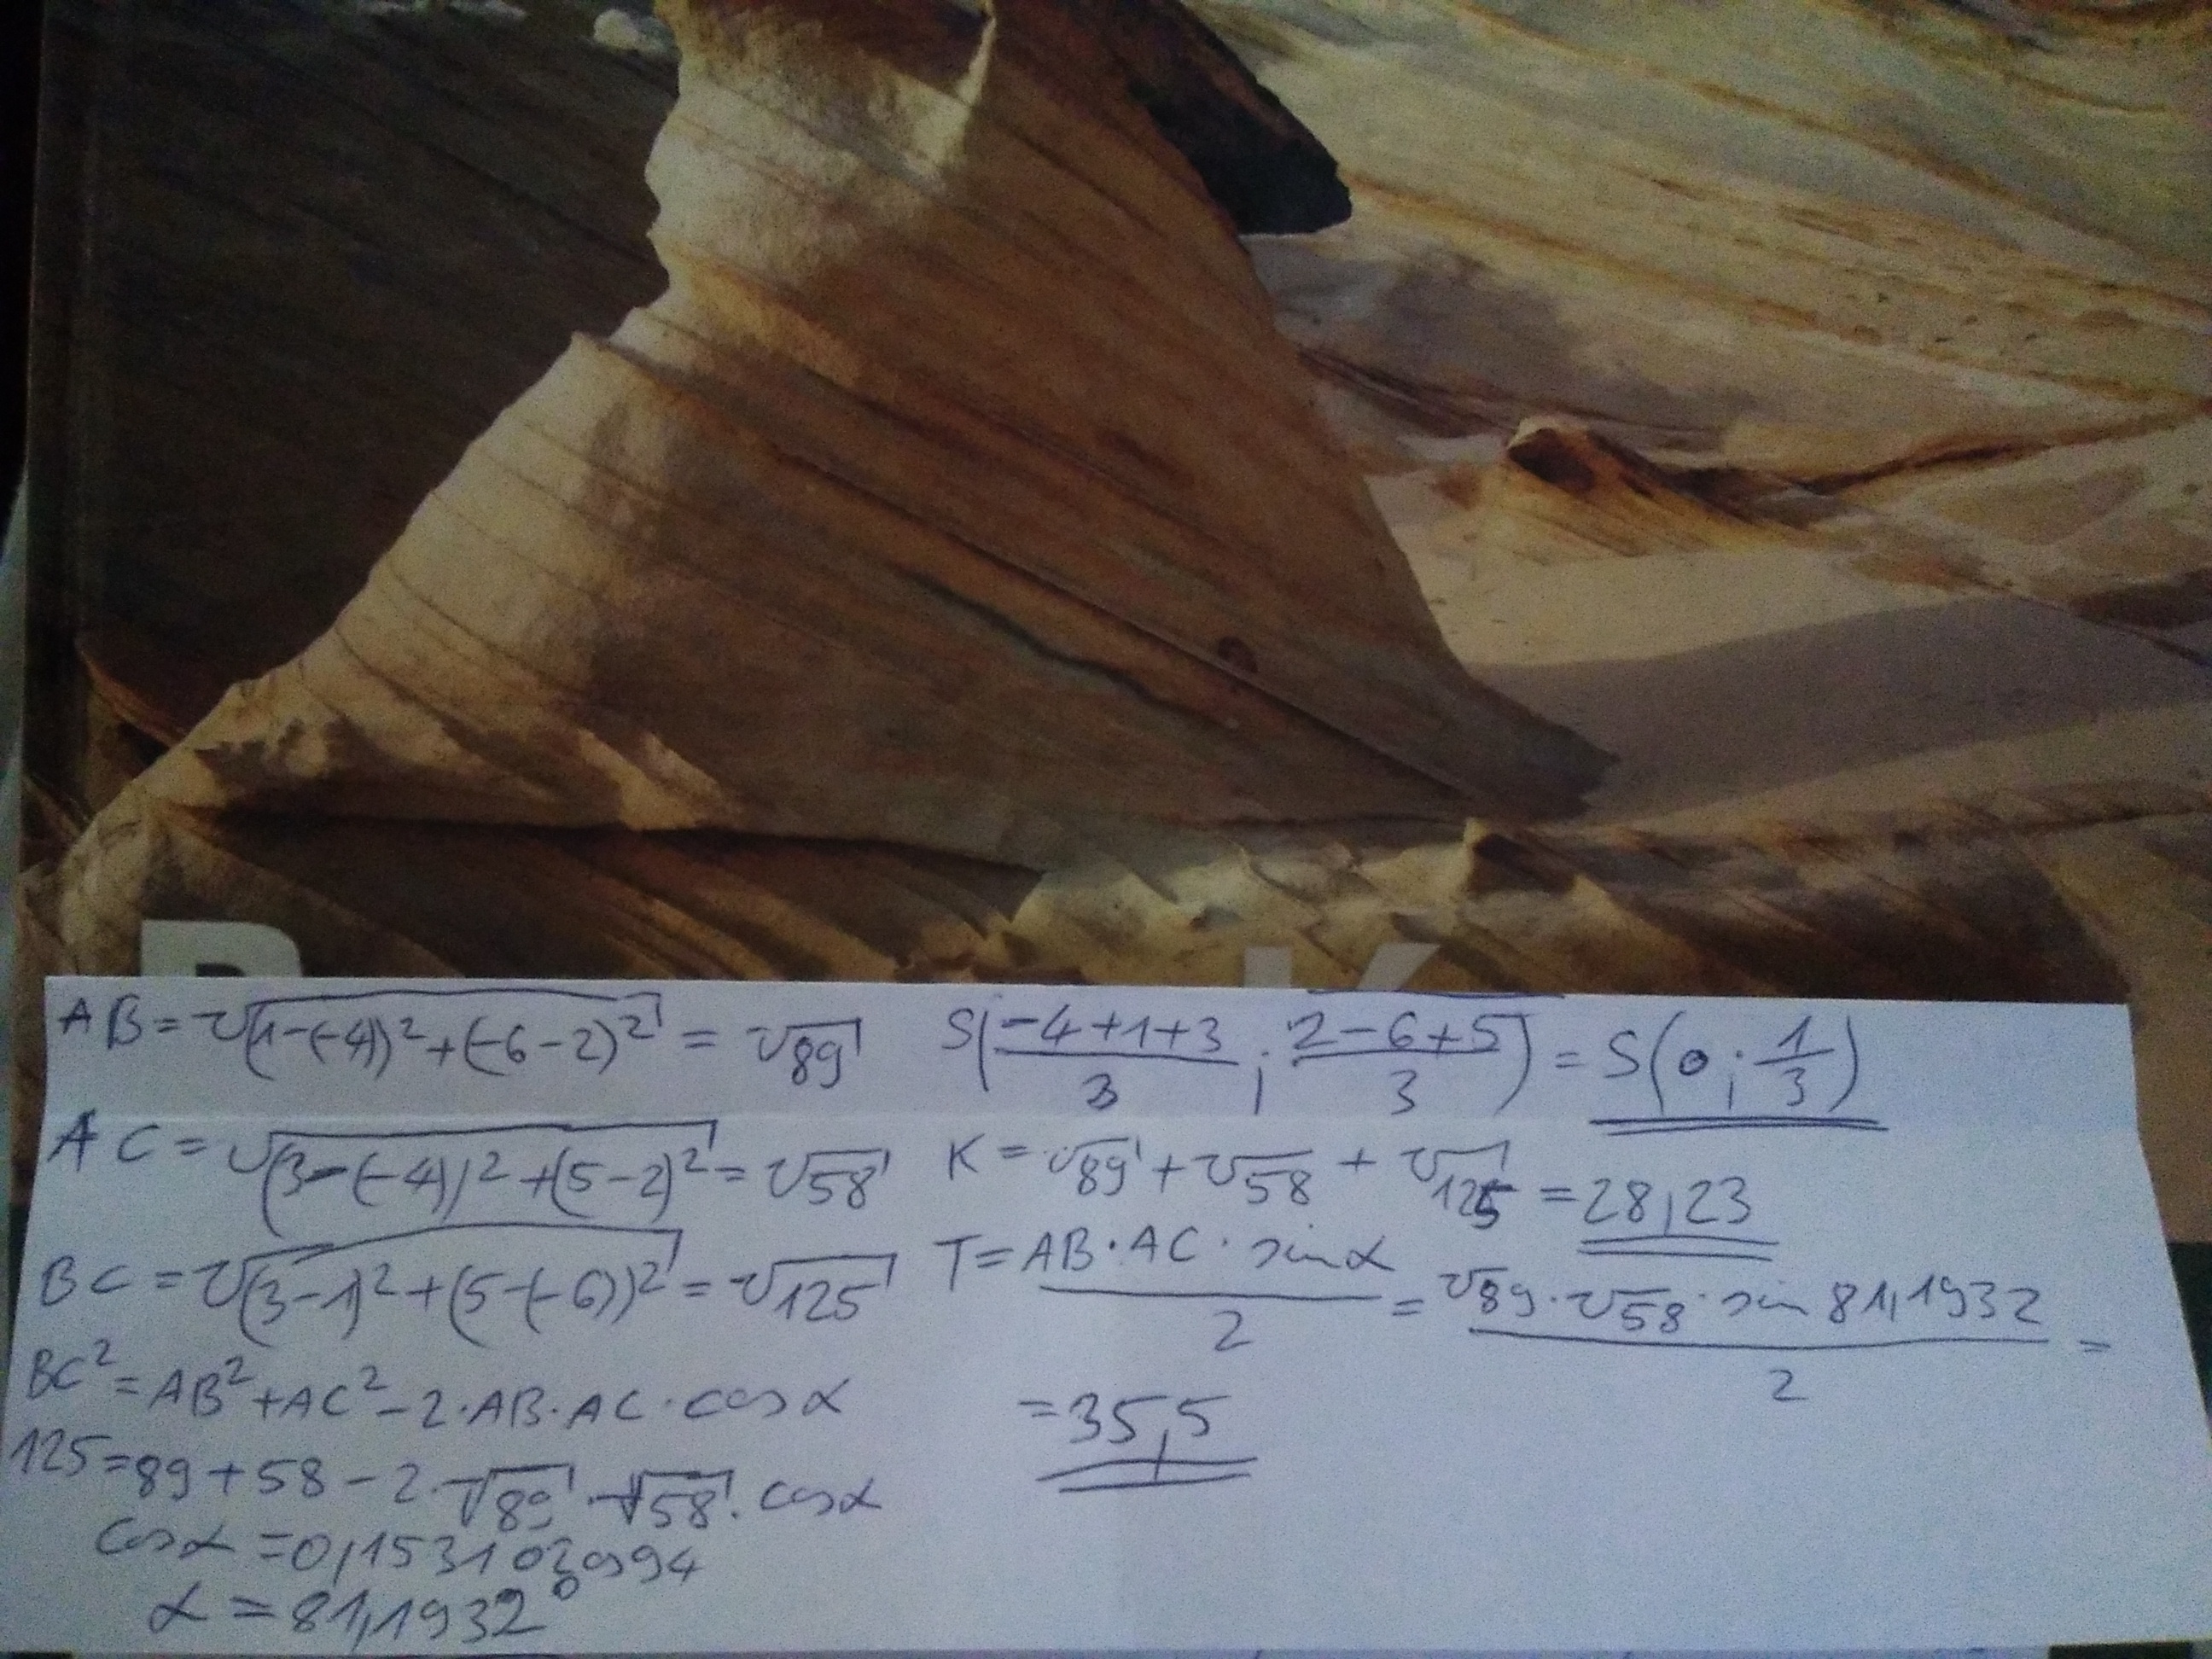 AB = √(1-(-4))² + (-6-2)² = √89
AC = √(3-(-4))² + (5-2)² = √58
BC = √(3-1)² + (5-(-6))² = √125
BC² = AB² + AC² - 2·AB·AC·cosα
125 = 89 + 58 - 2·√89·√58·cosα
cosα = 0,1531020994
α = 81,1932°
S(-4+1+3/3 ; 2-6+5/3) = S(0 ; 1/3)
K = √89 + √58 + √125 = 28,23
T = AB·AC·sinα/2 = √89·√58·sin 81,1932/2 =
= 35,5